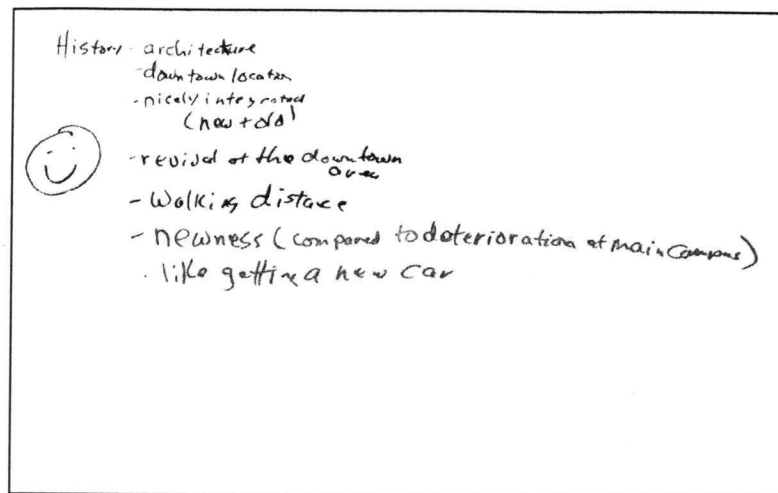 History - architecture
- downtown location
- nicely integrated
(new + old)
- revival of the downtown
area
- Walking distance
- newness (compared to deterioration at main campus)
. like getting a new car